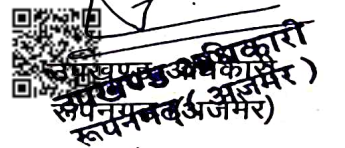 उपखण्ड अधिकारी
रूपनगढ़(अजमेर)
उपखण्ड अधिकारी
रूपनगढ़ ( अजमेर )